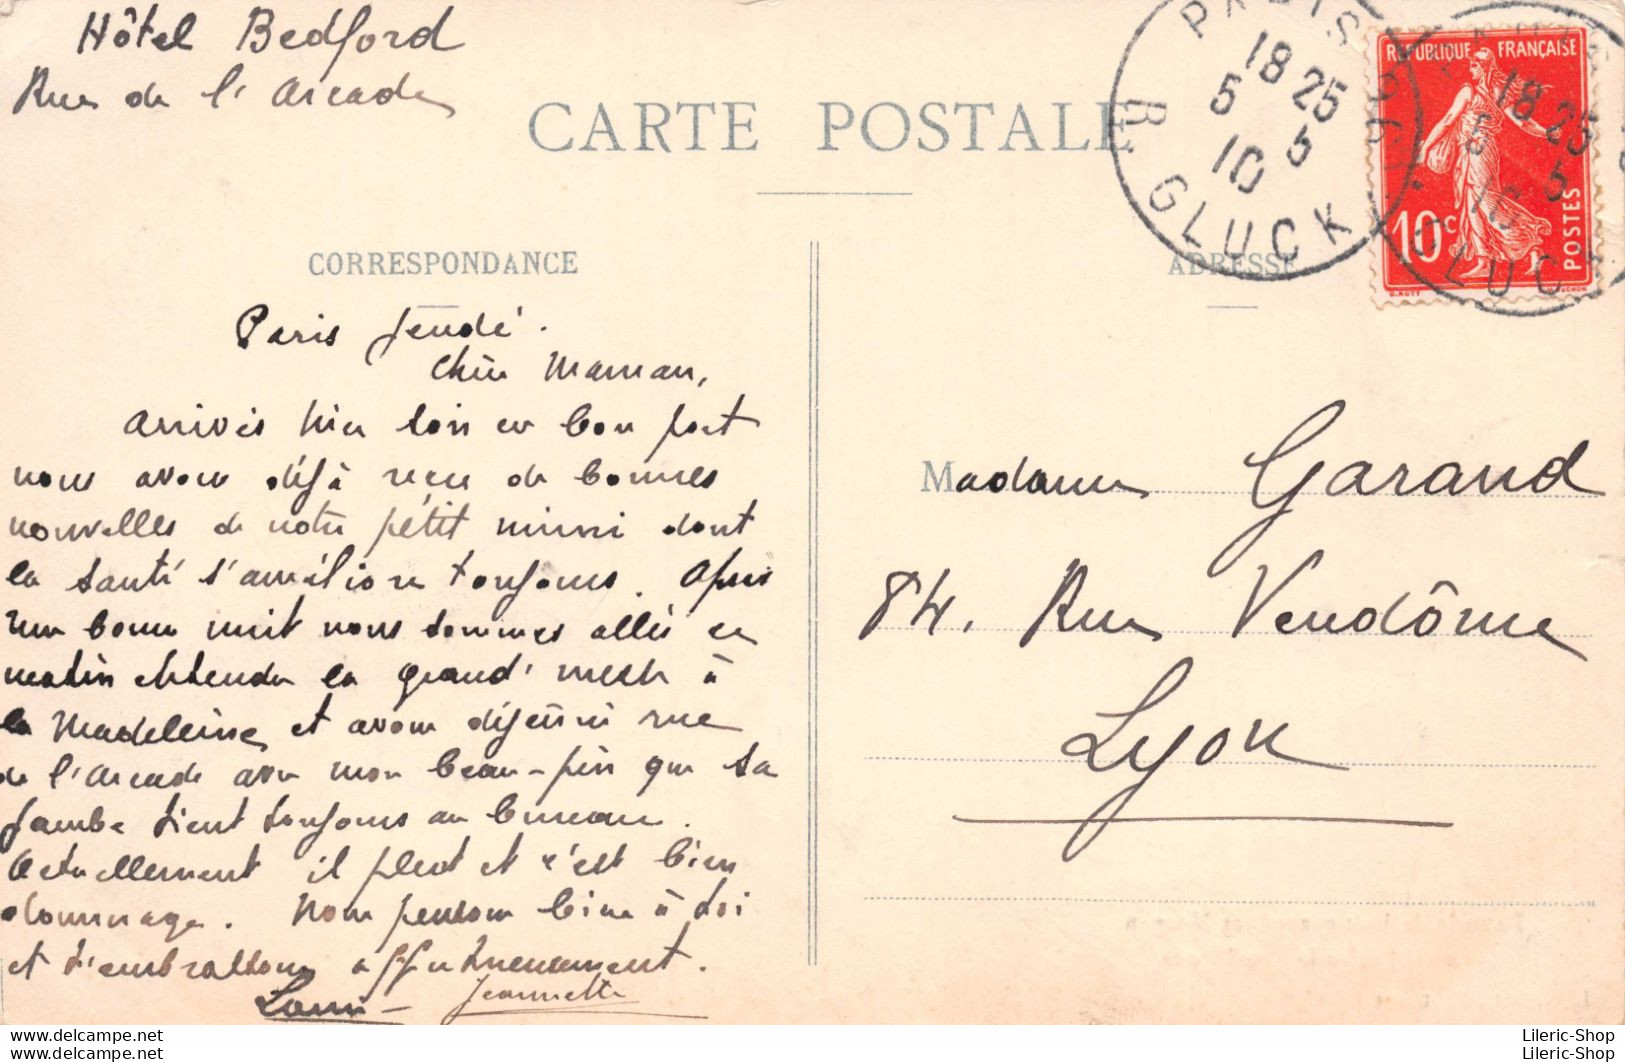 Hôtel Bedford
Rue de l'Arcade
CARTE POSTALE
PARIS
18 25
5 5
10
R. GLUCK
REPUBLIQUE FRANÇAISE
10c
POSTES
18 25
5 5
10
GLUCK
CORRESPONDANCE
Paris Jeudi.
Chère Maman,
Arrivés hier soir en bon port
nous avons déjà reçu de bonnes
nouvelles de notre pétit mimi dont
la santé s'améliore toujours. Après
une bonne nuit nous sommes allés ce
matin entendre la grand'messe à
la Madeleine et avons déjeûné rue
de l'Arcade avec mon beau-père que sa
jambe tient toujours au bureau.
Actuellement il pleut et c'est bien
dommage. Nous pensons bien à toi
et t'embrassons affectueusement.
Louis - Jeannette
ADRESSE
Madame Garand
84, Rue Vendôme
Lyon
Lileric-Shop
Lileric-Shop
Lileric-Shop
Lileric-Shop